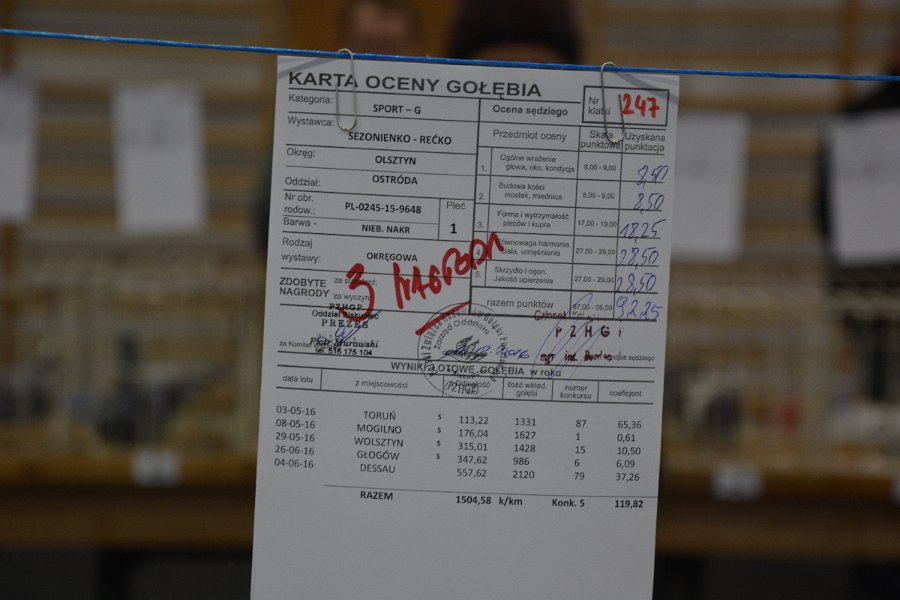 KARTA OCENY GOŁĘBIA
Kategoria: SPORT – G
Ocena sędziego
Nr klatki 247
Wystawca:
SEZONIENKO - REĆKO
Przedmiot oceny Skala punktowa Uzyskana punktacja
Okręg: OLSZTYN
1. Ogólne wrażenie głowa, oko, kondycja 8,00 - 9,00 8,50
Oddział: OSTRÓDA
2. Budowa kości mostek, miednica 8,00 - 9,00 8,50
Nr obr. rodow.: PL-0245-15-9648 Płeć 1
3. Forma i wytrzymałość pleców i kupra 17,00 - 19,00 18,25
Barwa - NIEB. NAKR
4. Równowaga harmonia ciała, umięśnienie 27,00 - 29,00 28,50
Rodzaj wystawy: OKRĘGOWA
5. Skrzydło i ogon. Jakość upierzenia 27,00 - 29,00 28,50
ZDOBYTE NAGRODY za standard:
za wyczyn:
3 NAGRODA
razem punktów 87,00 - 95,00 92,25
PZHGP
Oddział Biskupiec
PREZES
Piotr Murawski
tel. 516 175 104
za Komitet
Zarząd Oddziału
PZHGP
PZHG
mgr inż.
podpis sędziego
WYNIKI LOTOWE GOŁĘBIA w roku
data lotu z miejscowości odległość km ilość wkład. gołębi numer konkursu coeficjent
03-05-16 TORUŃ s 113,22 1331 87 65,36
08-05-16 MOGILNO s 176,04 1627 1 0,61
29-05-16 WOLSZTYN s 315,01 1428 15 10,50
26-06-16 GŁOGÓW s 347,62 986 6 6,09
04-06-16 DESSAU 557,62 2120 79 37,26
RAZEM 1504,58 k/km Konk. 5 119,82